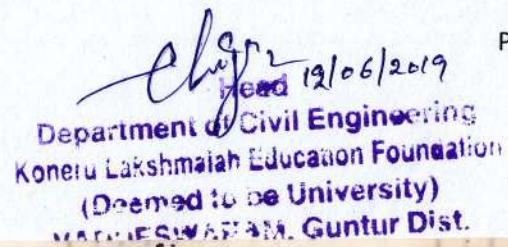 P
Head 12/06/2019
Department of Civil Engineering
Koneru Lakshmaiah Education Foundation
(Deemed to be University)
Guntur Dist.